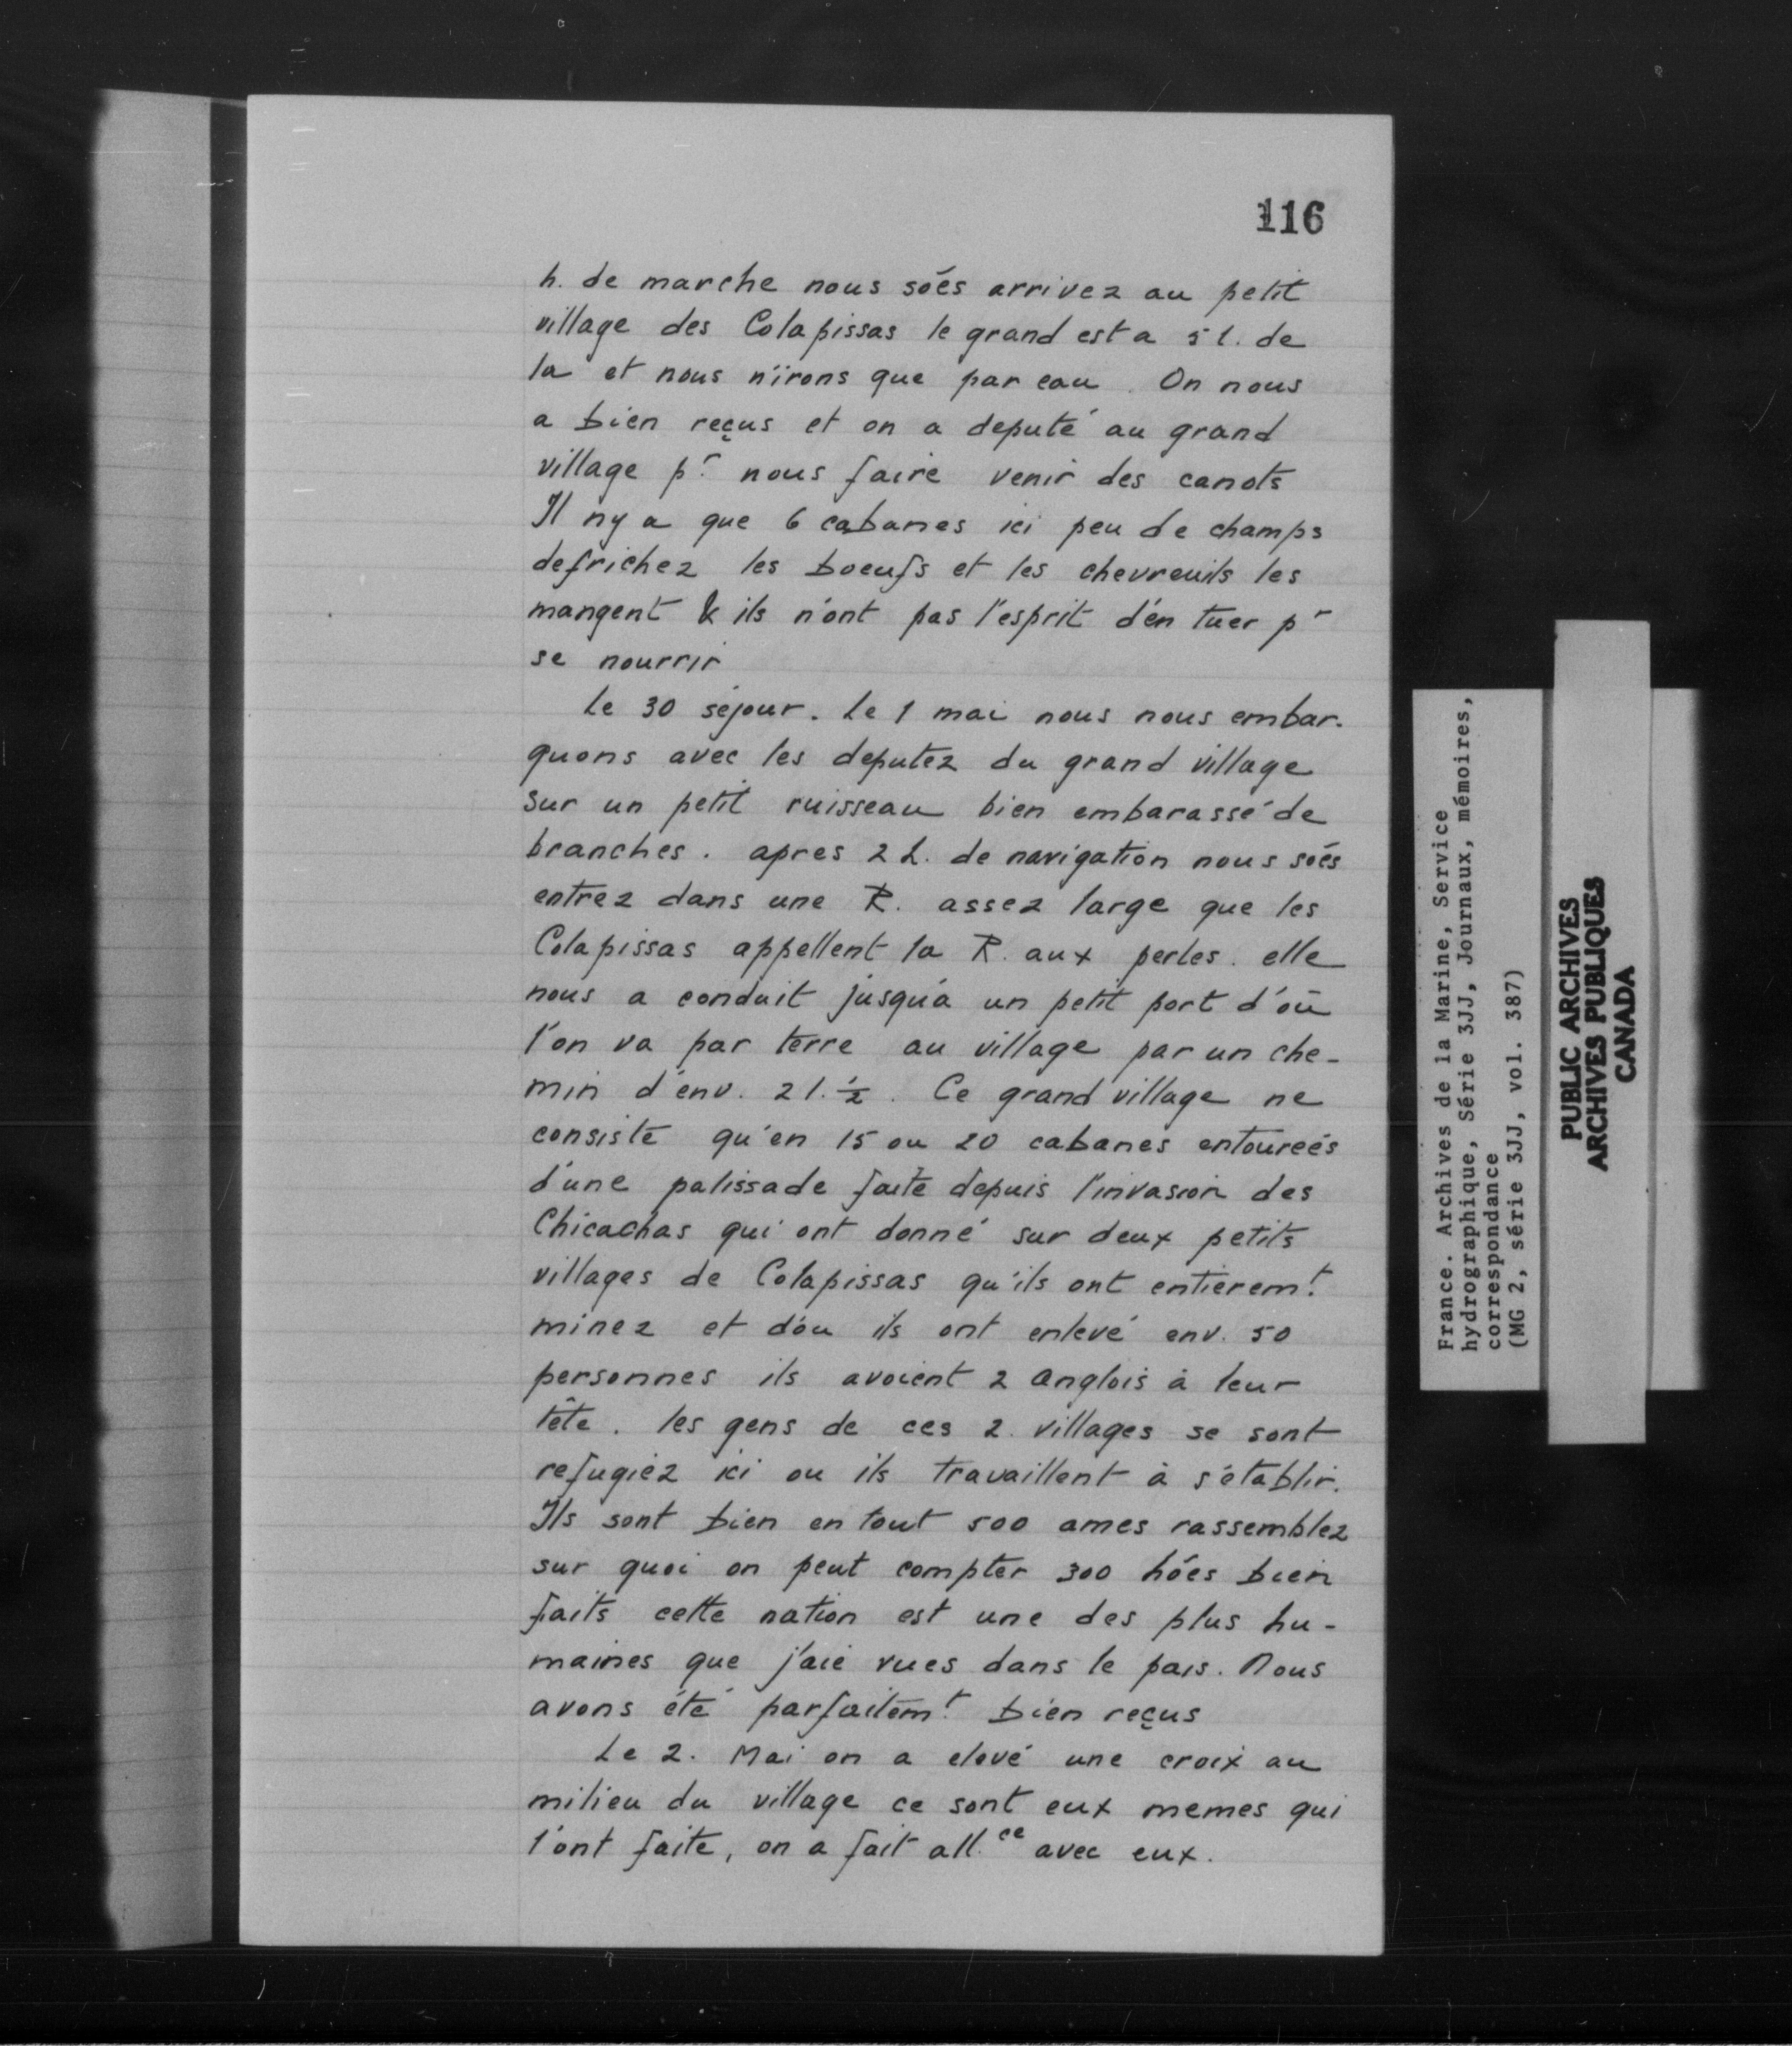 116
h. de marche nous sões arrivez au petit
village des Colapissas le grand est a 5 l. de
la et nous n'irons que par eau. On nous
a bien reçus et on a deputé au grand
village pr. nous faire venir des canots
Il ny a que 6 cabanes ici peu de champs
defrichez les boeufs et les chevreuils les
mangent & ils n'ont pas l'esprit d'en tuer pr
se nourrir
Le 30 séjour. Le 1 mai nous nous embar.
quons avec les deputez du grand village
sur un petit ruisseau bien embarassé de
branches. apres 2 h. de navigation nous sões
entrez dans une R. assez large que les
Colapissas appellent la R. aux perles. elle
nous a conduit jusqu'a un petit port d'où
l'on va par terre au village par un che-
min d'env. 2 l. ½. Ce grand village ne
consiste qu'en 15 ou 20 cabanes entourées
d'une palissade faite depuis l'invasion des
Chicachas qui ont donné sur deux petits
villages de Colapissas qu'ils ont entierem.t
minez et d'ou ils ont enlevé env. 50
personnes ils avoient 2 anglois à leur
tête. les gens de ces 2. villages se sont
refugiez ici ou ils travaillent à s'établir.
Ils sont bien en tout 500 ames rassemblez
sur quoi on peut compter 300 hões bien
faits cette nation est une des plus hu-
maines que j'aie vues dans le pais. Nous
avons été parfaitem.t bien reçus
Le 2. Mai on a elevé une croix au
milieu du village ce sont eux memes qui
l'ont faite, on a fait all.ce avec eux.
France. Archives de la Marine, Service
hydrographique, Série 3JJ, Journaux, mémoires,
correspondance
(MG 2, série 3JJ, vol. 387)
PUBLIC ARCHIVES
ARCHIVES PUBLIQUES
CANADA